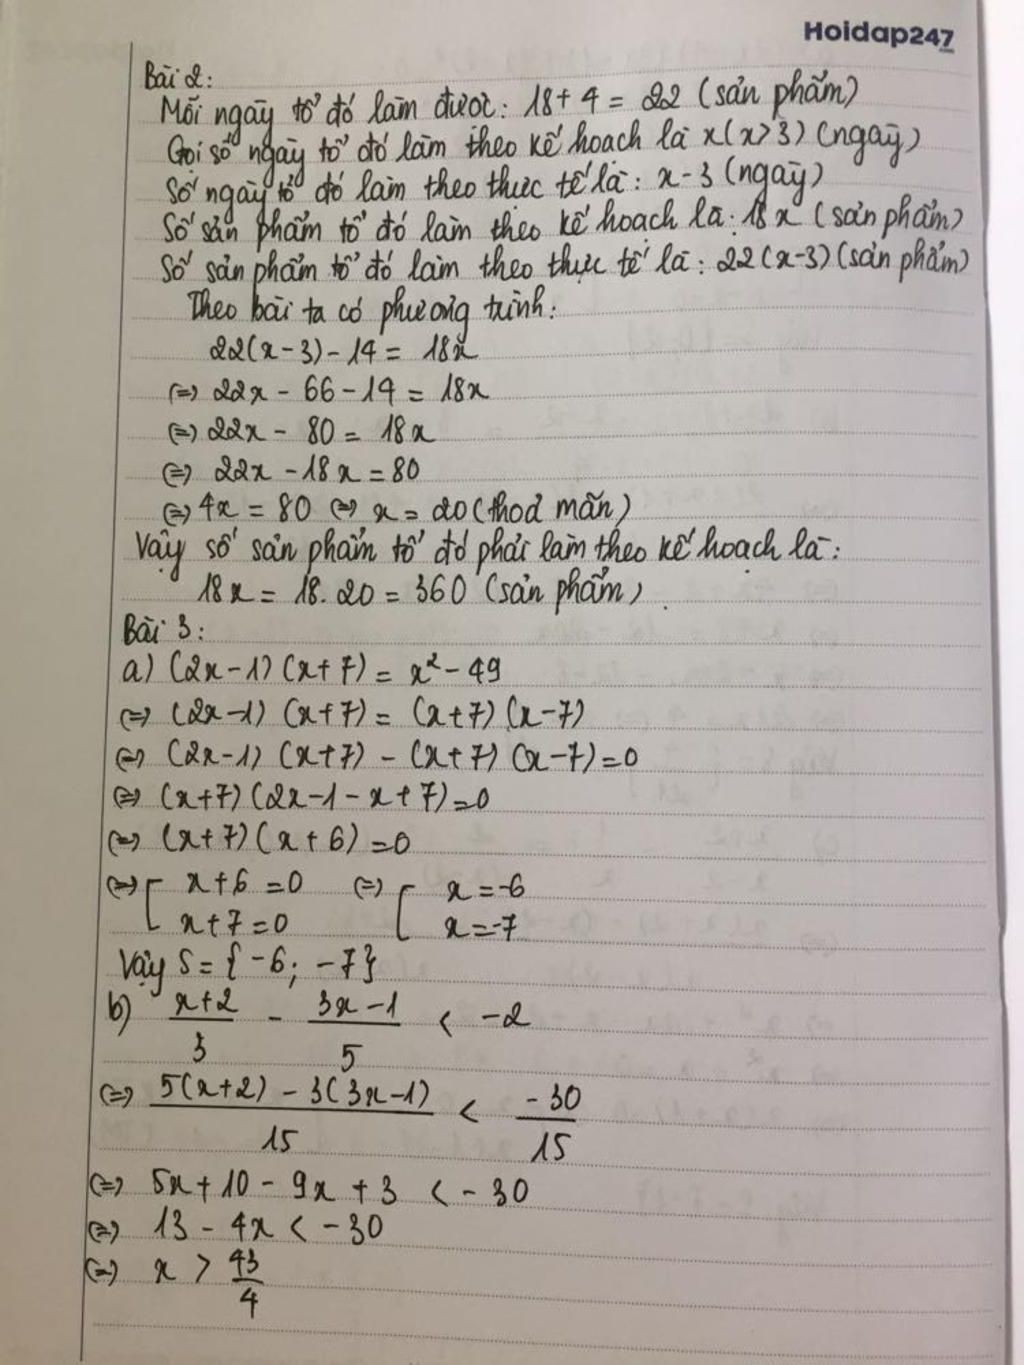 Hoidap247
Bài 2:
Mỗi ngày tổ đó làm được: 18 + 4 = 22 (sản phẩm)
Gọi số ngày tổ đó làm theo kế hoạch là x (x > 3) (ngày)
Số ngày tổ đó làm theo thực tế là: x - 3 (ngày)
Số sản phẩm tổ đó làm theo kế hoạch là: 18x (sản phẩm)
Số sản phẩm tổ đó làm theo thực tế là: 22(x-3) (sản phẩm)
Theo bài ta có phương trình:
22(x-3) - 14 = 18x
(=) 22x - 66 - 14 = 18x
(=) 22x - 80 = 18x
(=) 22x - 18x = 80
(=) 4x = 80 (=) x = 20 (thoả mãn)
Vậy số sản phẩm tổ đó phải làm theo kế hoạch là:
18x = 18.20 = 360 (sản phẩm)
Bài 3:
a) (2x-1)(x+7) = x² - 49
(=) (2x-1)(x+7) = (x+7)(x-7)
(=) (2x-1)(x+7) - (x+7)(x-7) = 0
(=) (x+7)(2x-1-x+7) = 0
(=) (x+7)(x+6) = 0
(=) [ x+6 = 0 (=) [ x = -6
x+7 = 0 x = -7
Vậy S = {-6; -7}
b) x+2 / 3 - 3x-1 / 5 < -2
(=) 5(x+2) - 3(3x-1) / 15 < -30 / 15
(=) 5x + 10 - 9x + 3 < -30
(=) 13 - 4x < -30
(=) x > 43 / 4